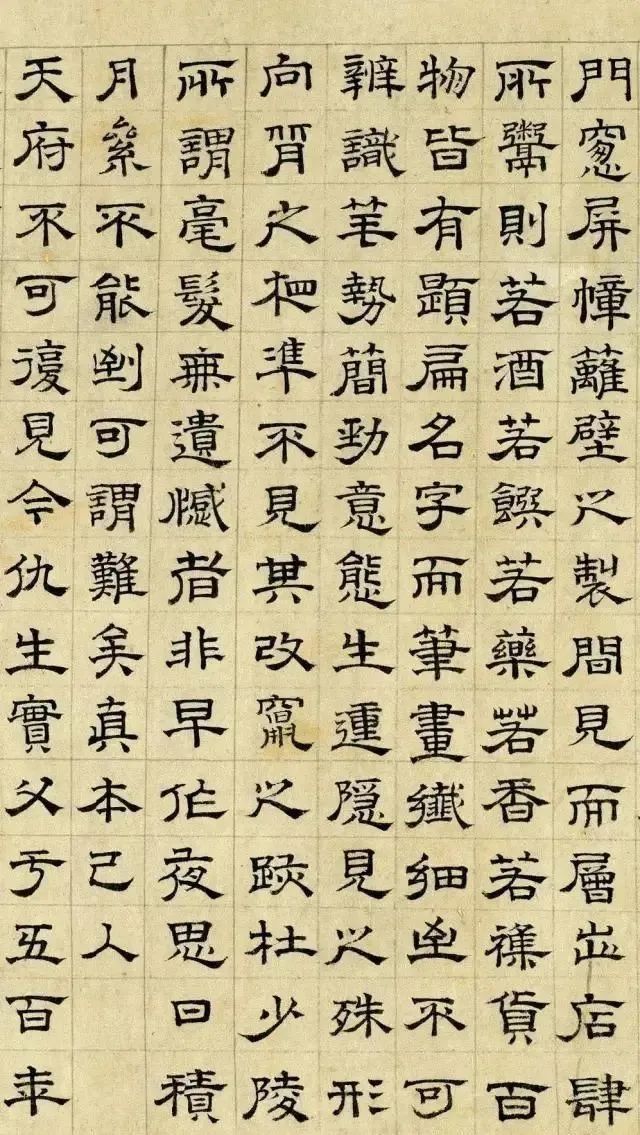 門窓屏幛籬壁之製間見而層出店肆
所鬻則若酒若饌若藥若香若襍貨百
物皆有題扁名字而筆畫纖細至不可
辨識笔勢簡勁意態生運隱見之殊形
向背之相準不見其改竄之跡杜少陵
所謂毫髮無遺憾者非早作夜思日積
月絫不能到可謂難矣真本已入
天府不可復見今仇生實父于五百年